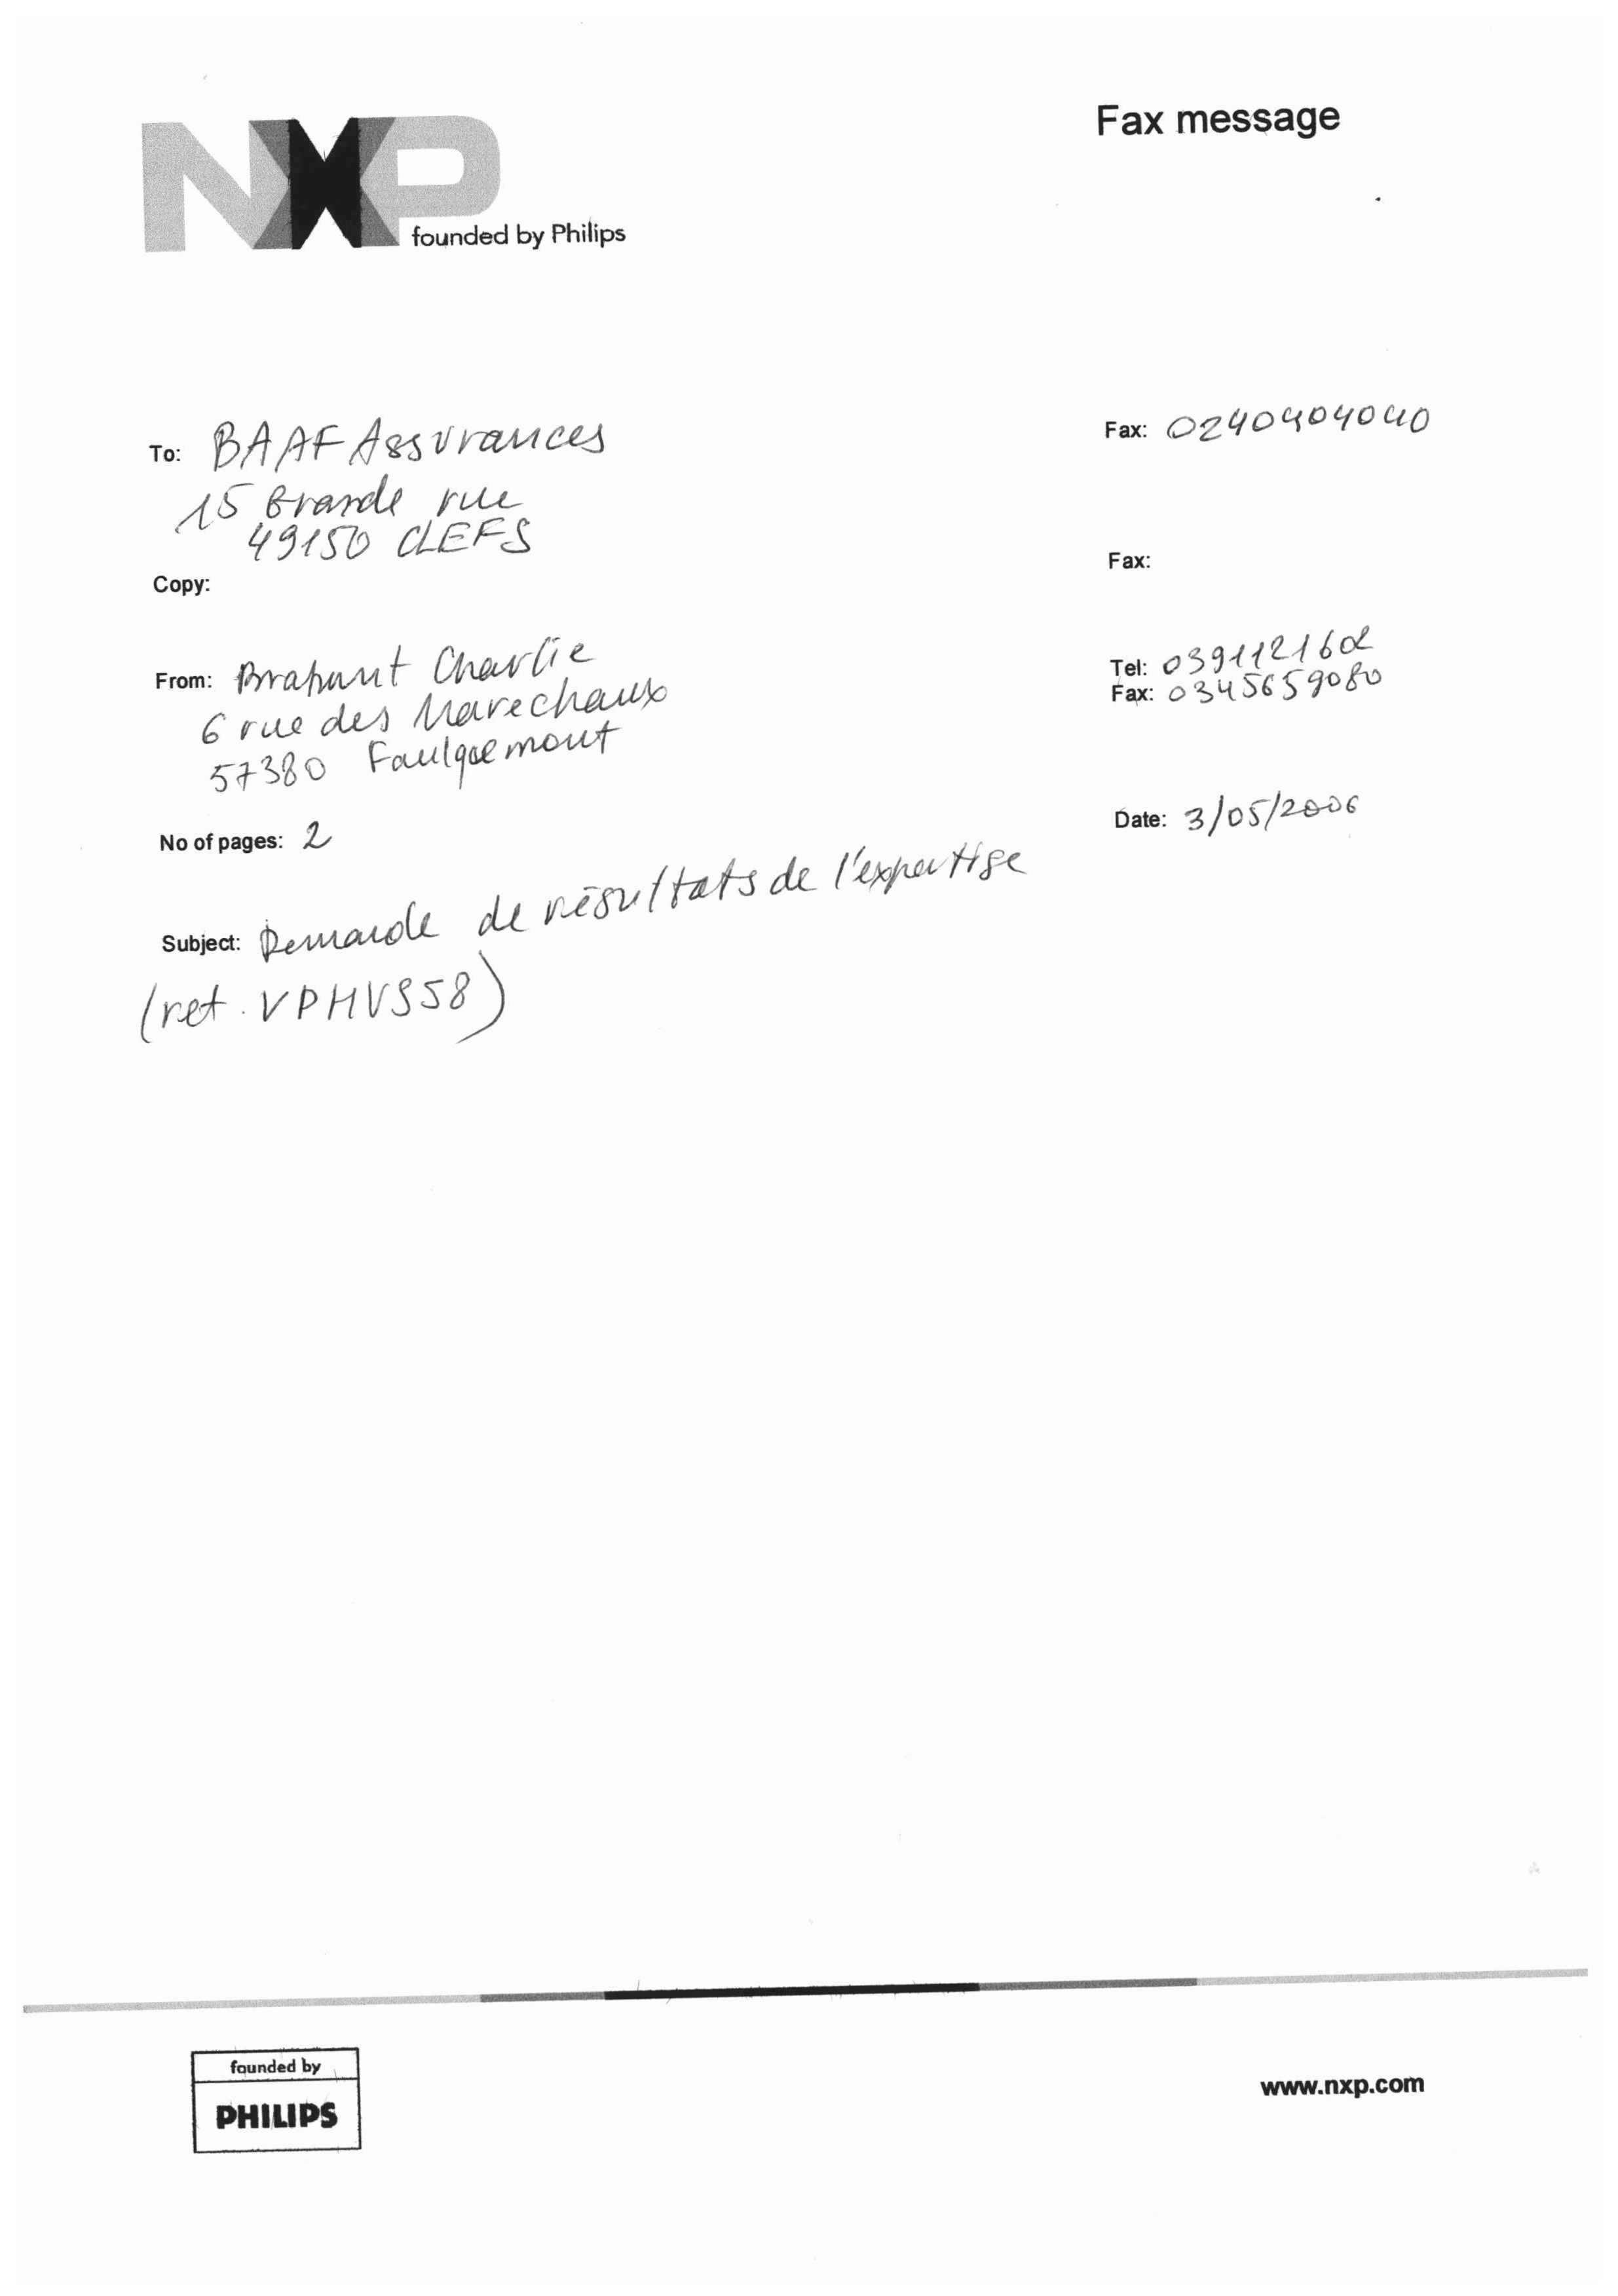 NXP
founded by Philips
Fax message
To: BAAF Assurances
15 Grande rue
49150 CLEFS
Fax: 0240404040
Copy:
Fax:
From: Brabant Charlie
6 rue des Marechaux
57380 Faulquemont
Tel: 0391121602
Fax: 0345659080
No of pages: 2
Date: 3/05/2006
Subject: Demande de résultats de l'expertise
(ref. VPHVS58)
founded by
PHILIPS
www.nxp.com